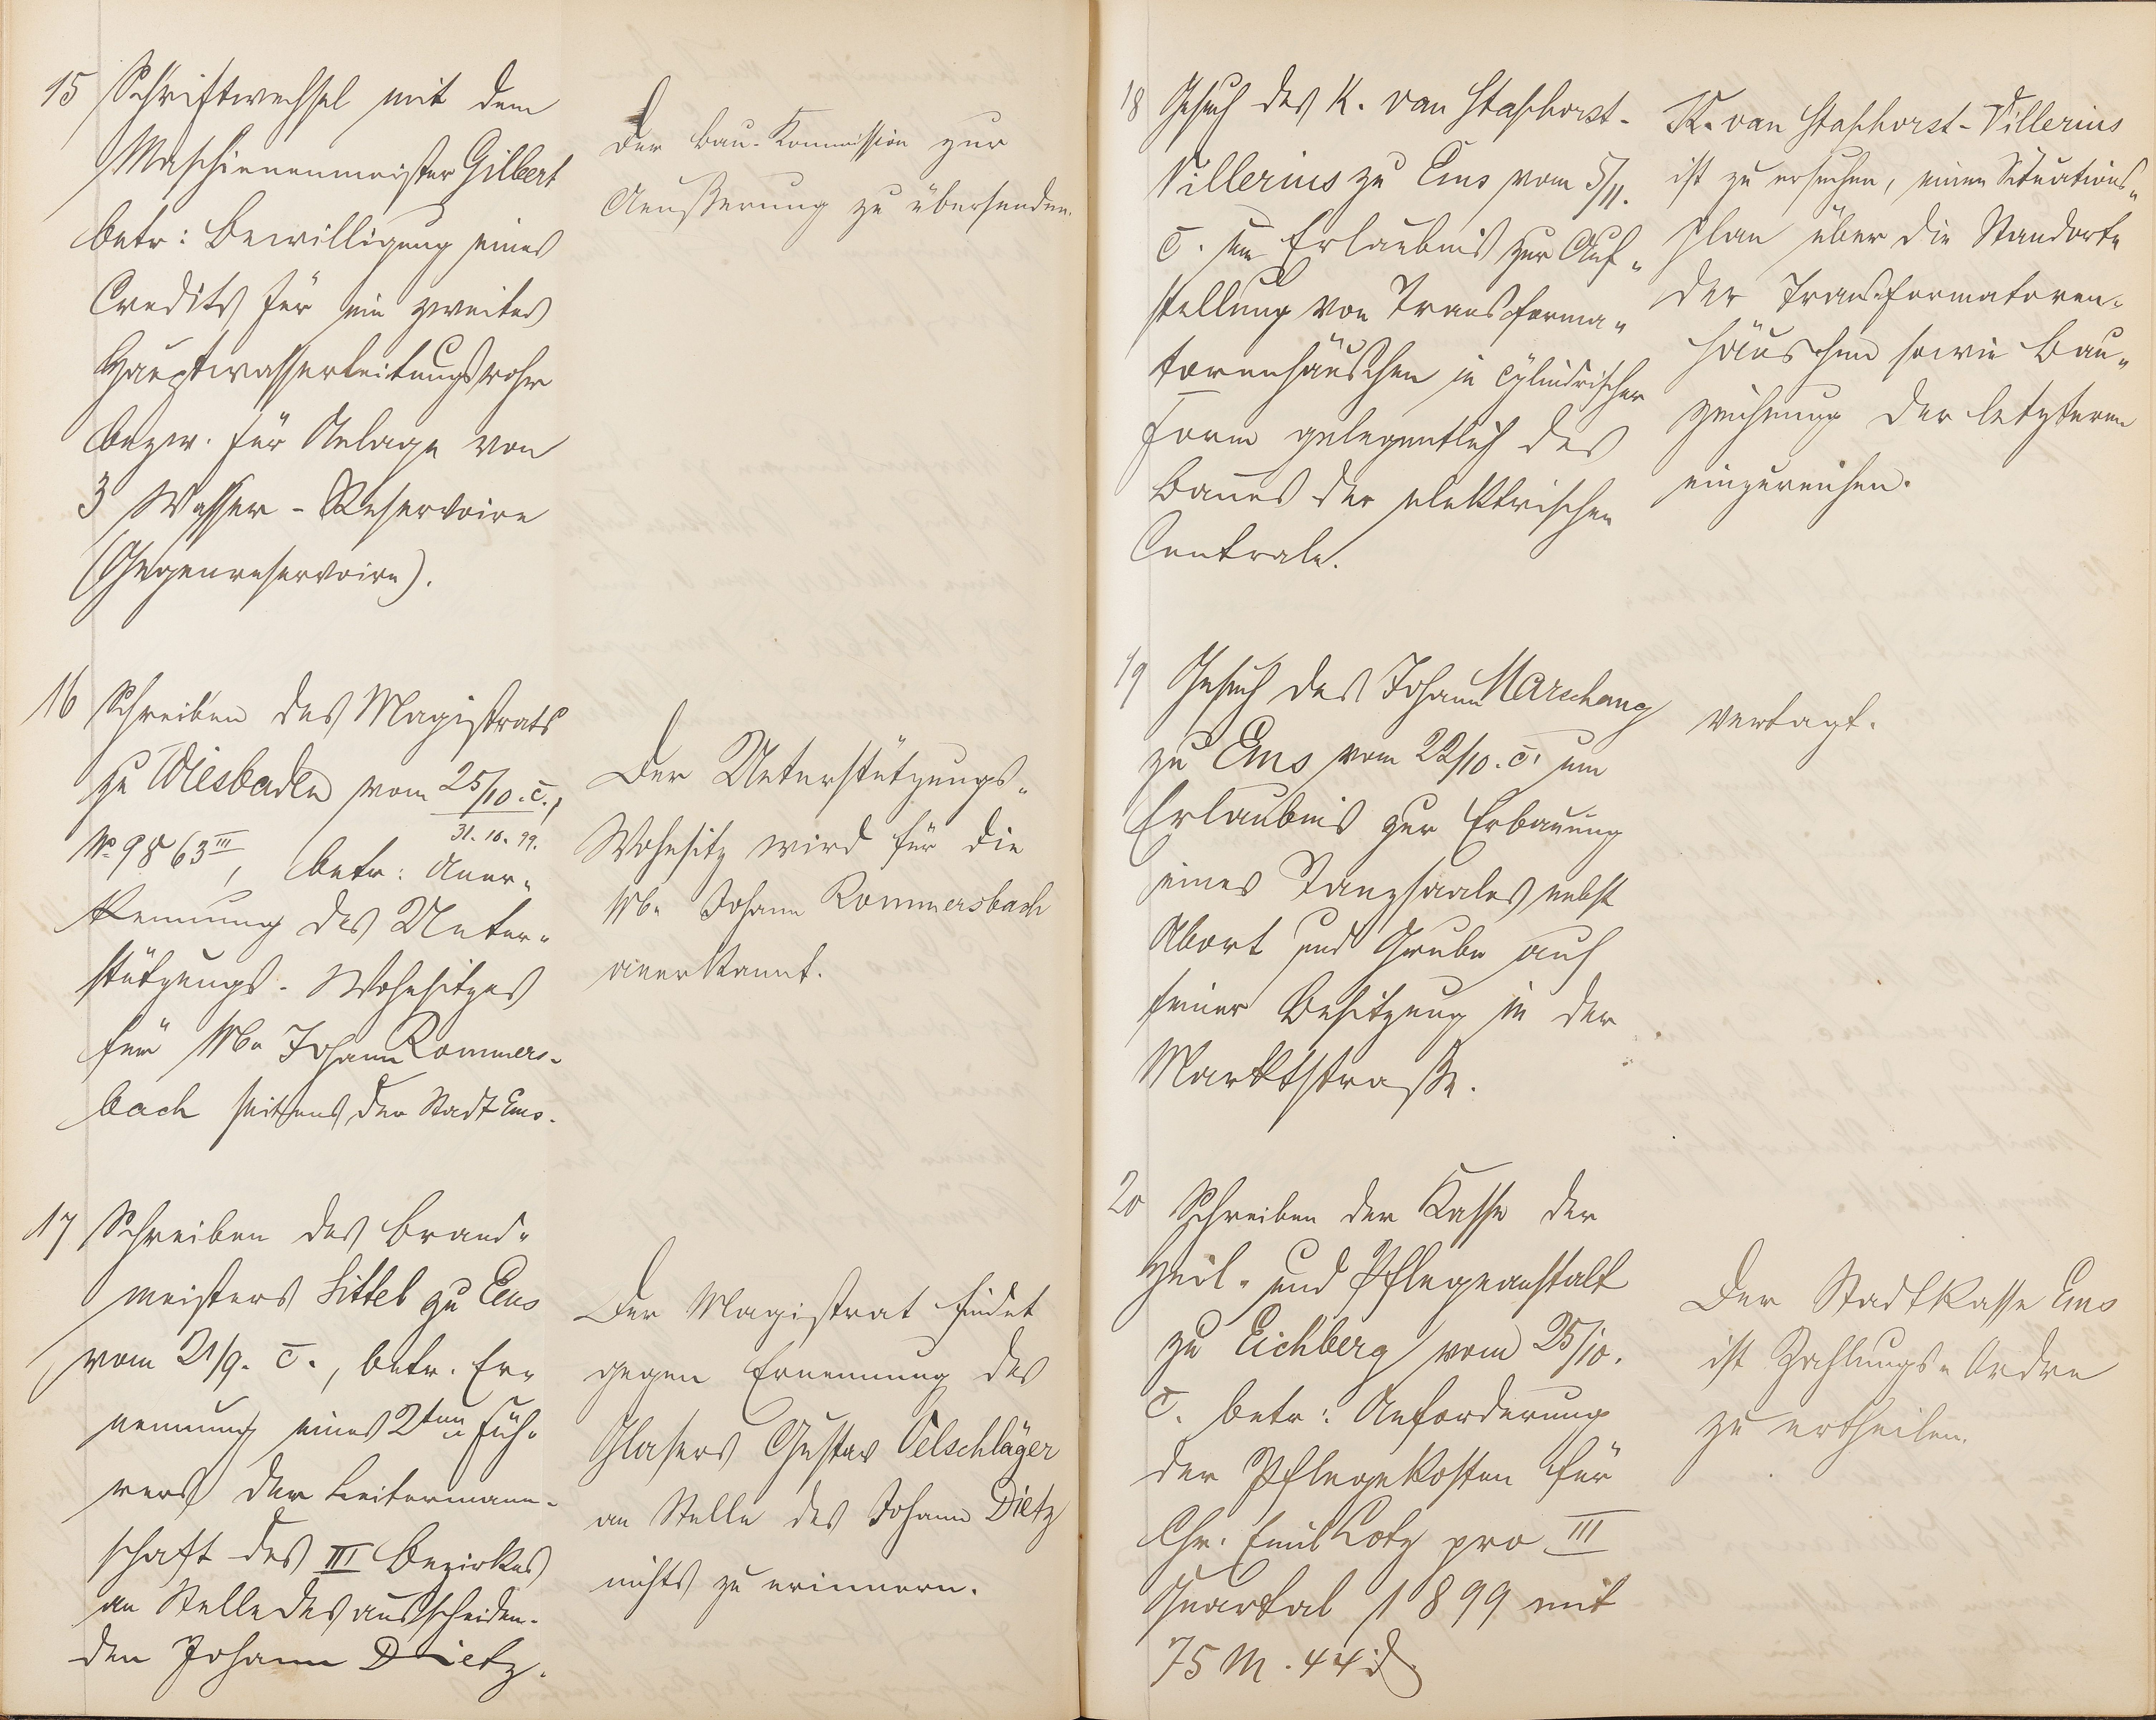 15 Schriftwechsel mit dem
Maschinenmeister Gilbert
betr: Bewilligung eines
Credits für ein zweites
Hauptwasserleitungsrohr
bezw. für Anlage von
3 Wasser-Reservoire
(Gegenreservoire).
Der Bau-Kommission zur
Aeußerung zu übersenden.
16 Schreiben des Magistrats
zu Wiesbaden vom 25/10. c.,
31.10.99.
No 9863 III, betr: Aner-
kennung des Unter-
stützungs-Wohnsitzes
für Wb. Johann Rommers-
bach seitens der Stadt Ems.
Der Unterstützungs-
Wohnsitz wird für die
Wb. Johann Rommersbach
anerkannt.
17 Schreiben des Brand-
meisters Sittel zu Ems
vom 21/9. c., betr. Er-
nennung eines 2ten Füh-
rers der Leitermann-
schaft des III Bezirkes
an Stelle des ausscheiden-
den Johann Dietz.
Der Magistrat findet
gegen Ernennung des
Glasers Gustav Oelschläger
an Stelle des Johann Dietz
nichts zu erinnern.
18 Gesuch des K. van Staphorst-
Villerius zu Ems vom 5/11.
c. um Erlaubnis zur Auf-
stellung von Transforma-
torenhäuschen in cylindrischer
Form gelegentlich des
Baues der elektrischen
Centrale.
K. van Staphorst-Villerius
ist zu ersuchen, einen Situations-
plan über die Standorte
der Transformatoren-
häuschen sowie Bau-
zeichnung der letzteren
einzureichen.
19 Gesuch des Johann Marschang
zu Ems vom 22/10. c. um
Erlaubnis zur Erbauung
eines Tanzsaales nebst
Abort und Grube auf
seiner Besitzung in der
Marktstraße.
vertagt.
20 Schreiben der Kasse der
Heil- und Pflegeanstalt
zu Eichberg vom 25/10.
c. betr: Anforderung
der Pflegekosten für
Chr. Emil Lotz pro III
Quartal 1899 mit
75 M. 44 d
Der Stadtkasse Ems
ist Zahlungs-Ordre
zu ertheilen.